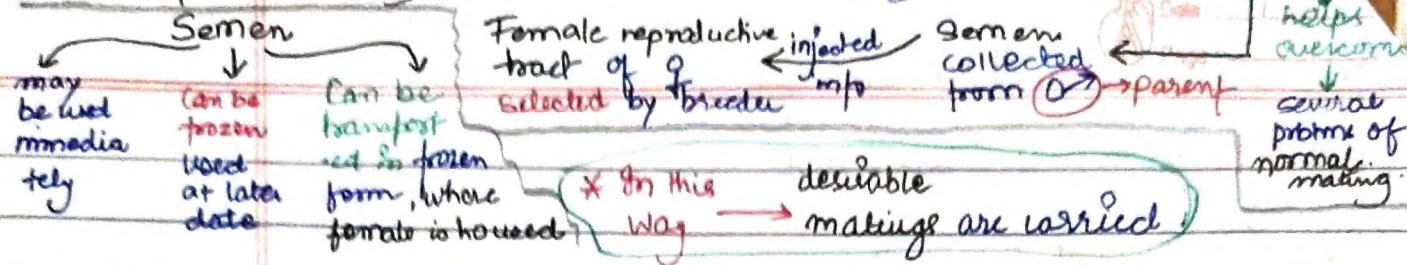 Semen
may
be used
immedia
tely
can be
frozen
used
at later
date
Can be
transport
ed in frozen
form, where
female is housed
Female reproductive
tract of ♀
selected by breeder
injected
into
Semen
collected
from ♂ → parent
helps
overcome
several
probms of
normal
mating.
* In this
way
desirable
matings are carried